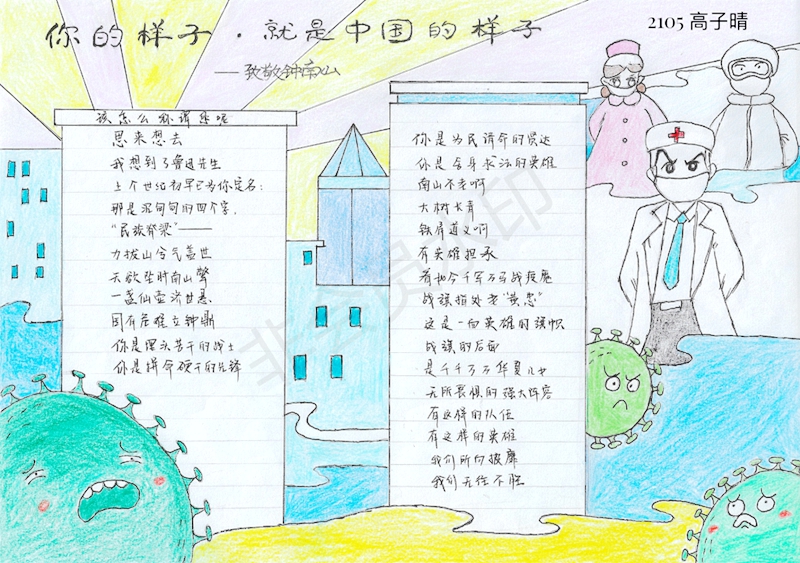 你的样子·就是中国的样子
2105 高子晴
——致敬钟南山
该怎么称谓您呢
思来想去
我想到了鲁迅先生
上个世纪初早已为你定名:
那是沉甸甸的四个字,
“民族脊梁”——
力拔山兮气盖世
天欲坠时南山擎
一盏仙壶济世患
国有危难立钟鼎
你是埋头苦干的战士
你是拼命硬干的先锋
你是为民请命的贤达
你是舍身求法的英雄
南山不老啊
大树长青
铁肩道义啊
有英雄担承
看如今千军万马战疫魔
战旗指处老“黄忠”
这是一面英雄的旗帜
战旗的后面
是千千万万华夏儿女
无所畏惧的强大阵容
有这样的队伍
有这样的英雄
我们所向披靡
我们无往不胜
非会员水印